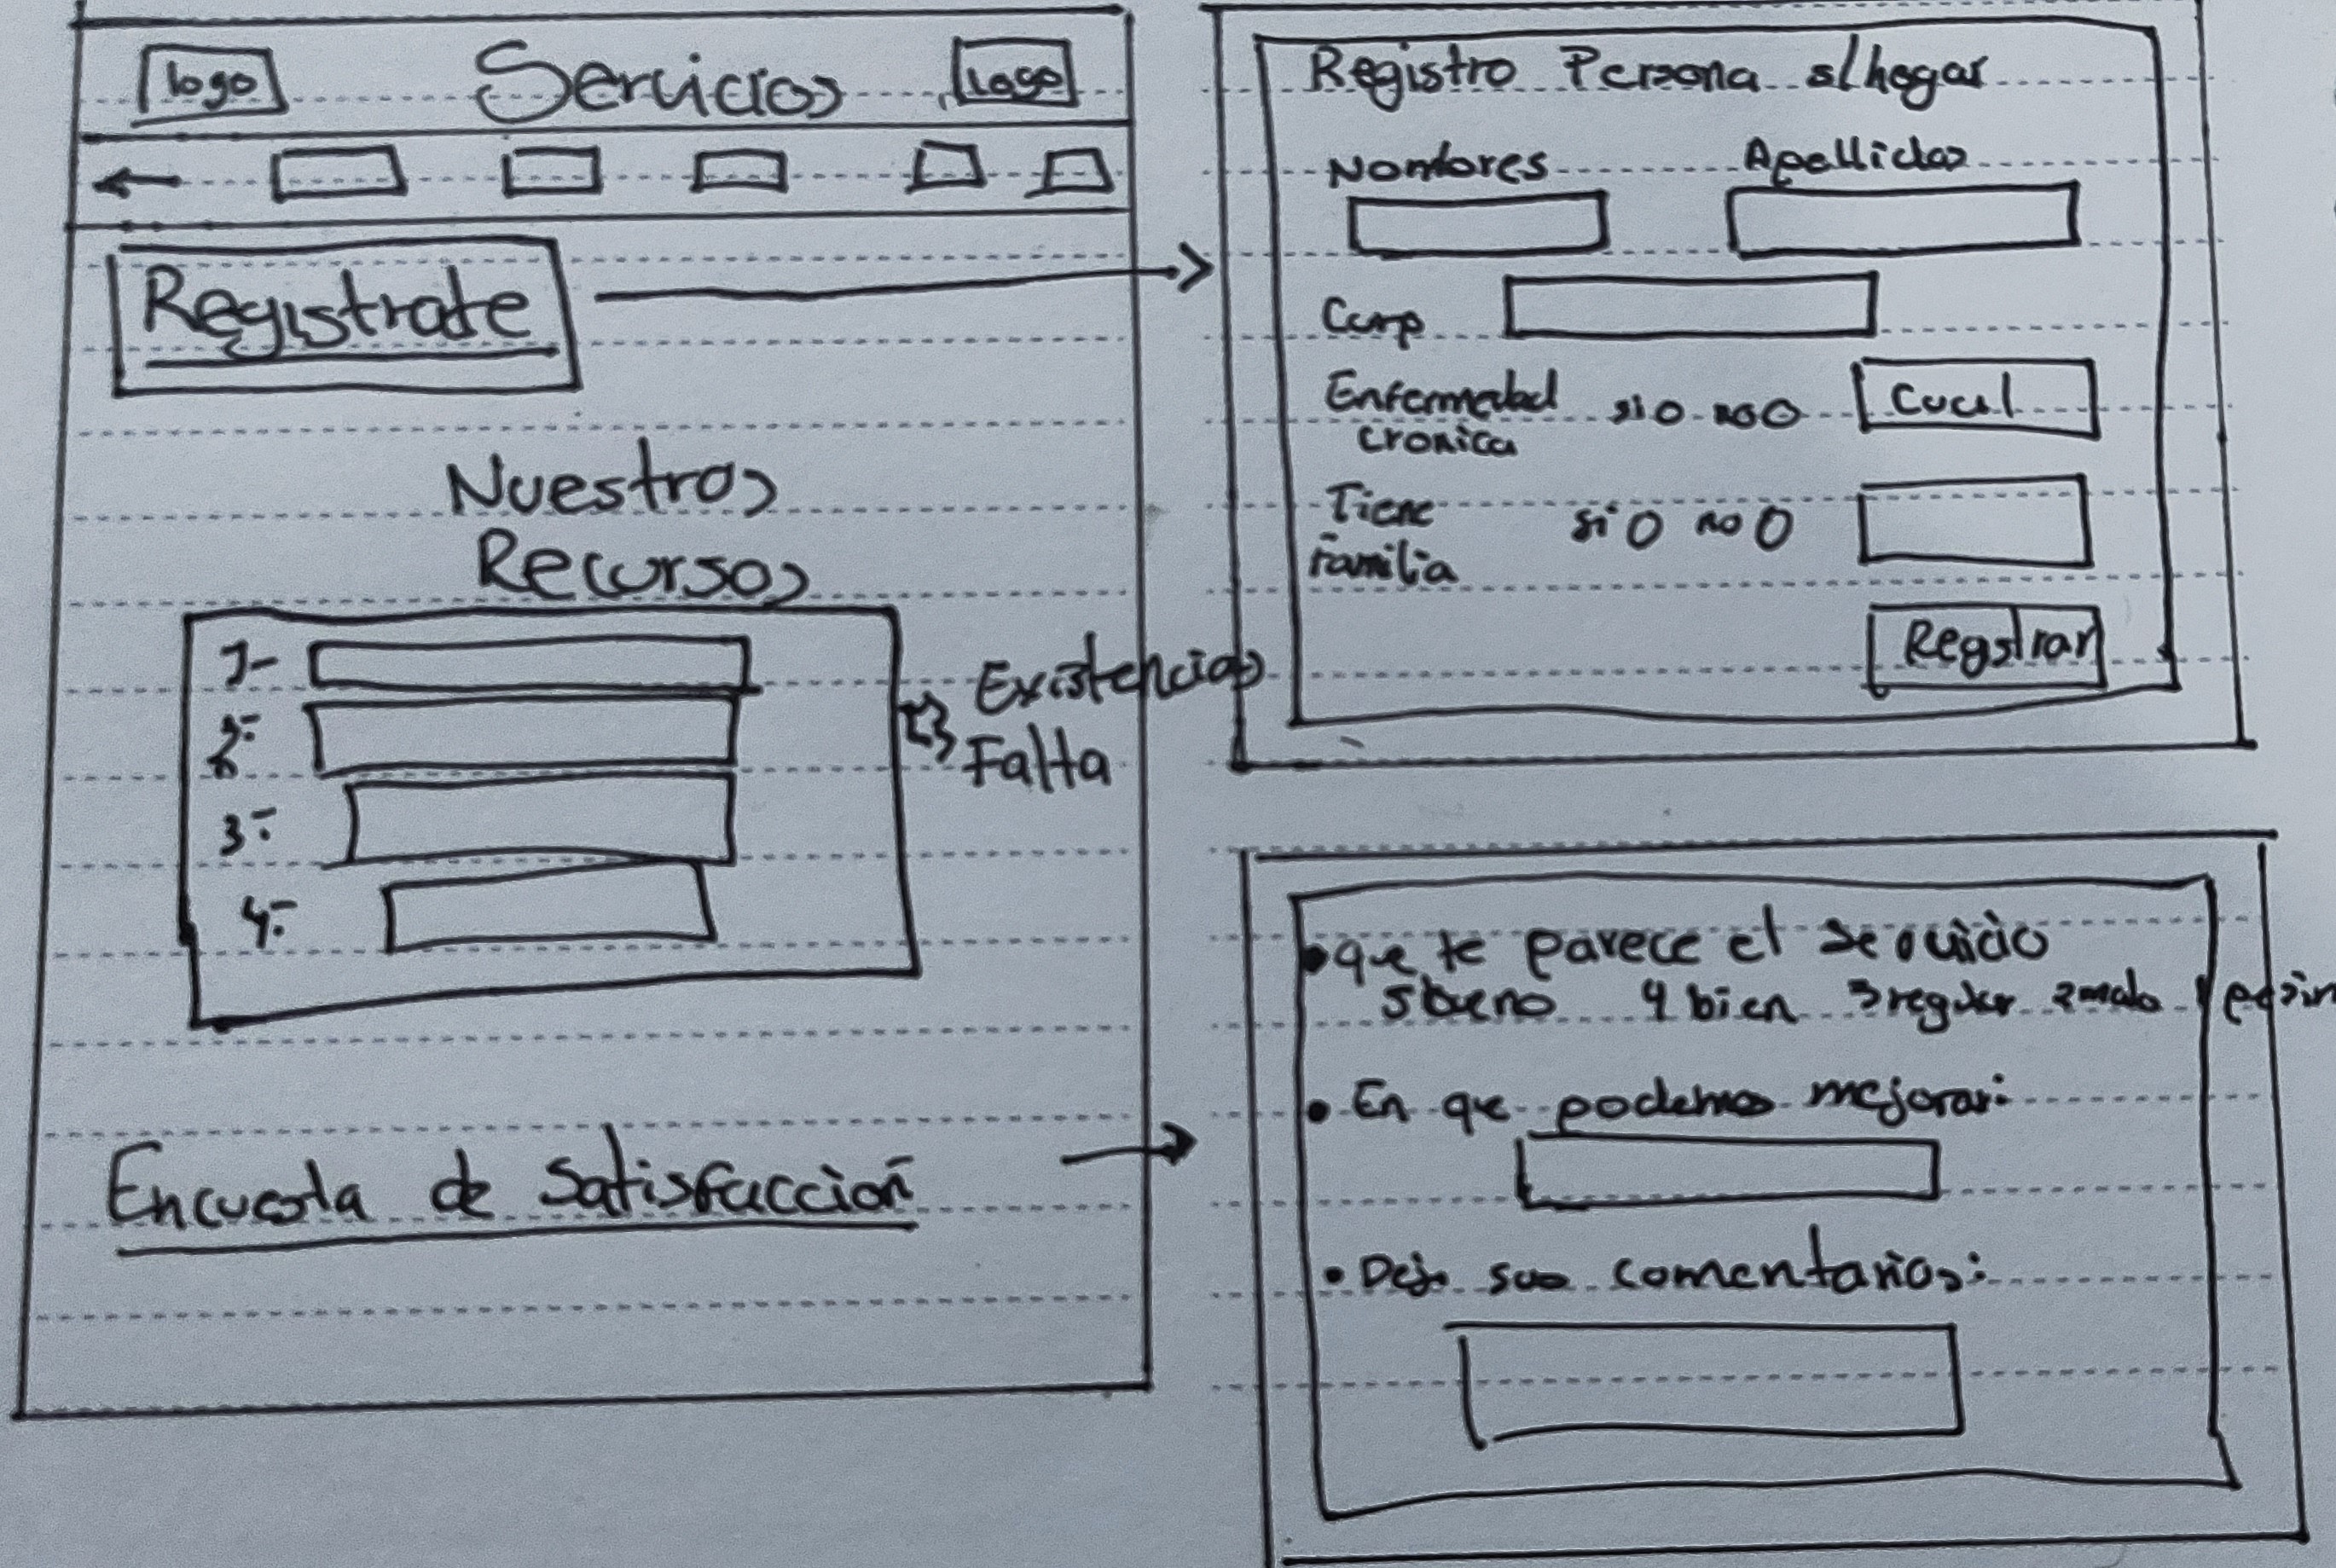 logo Servicios Logo
Registrate
Nuestros
Recursos
1-
2-
3-
4-
Existencias
Falta
Encuesta de Satisfacción
Registro Persona s/hogar
Nombres Apellidos
Curp
Enfermedad si no Cual
cronica
Tiene si no
familia
Registrar
• que te parece el servicio
5 bueno 4 bien 3 regular 2 malo 1
• En que podemos mejorar:
• Deje sus comentarios: